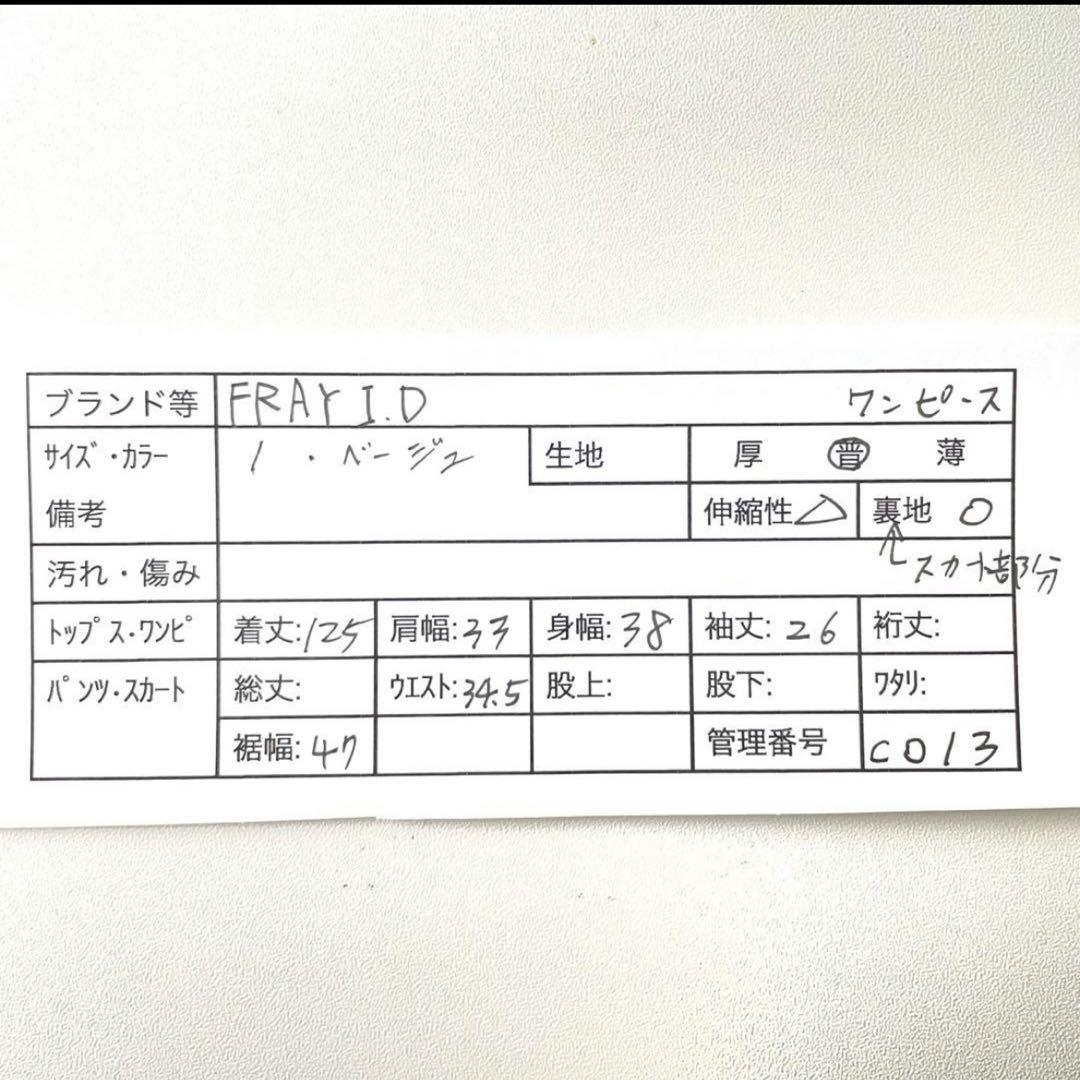 ブランド等 FRAY I.D ワンピース
サイズ・カラー 1 ・ ベージュ 生地 厚 普 薄
備考 伸縮性 △ 裏地 ○
汚れ・傷み スカート部分
トップス・ワンピ 着丈:125 肩幅:33 身幅:38 袖丈:26 裄丈:
パンツ・スカート 総丈: ウエスト:34.5 股上: 股下: ワタリ:
裾幅:47 管理番号 C013